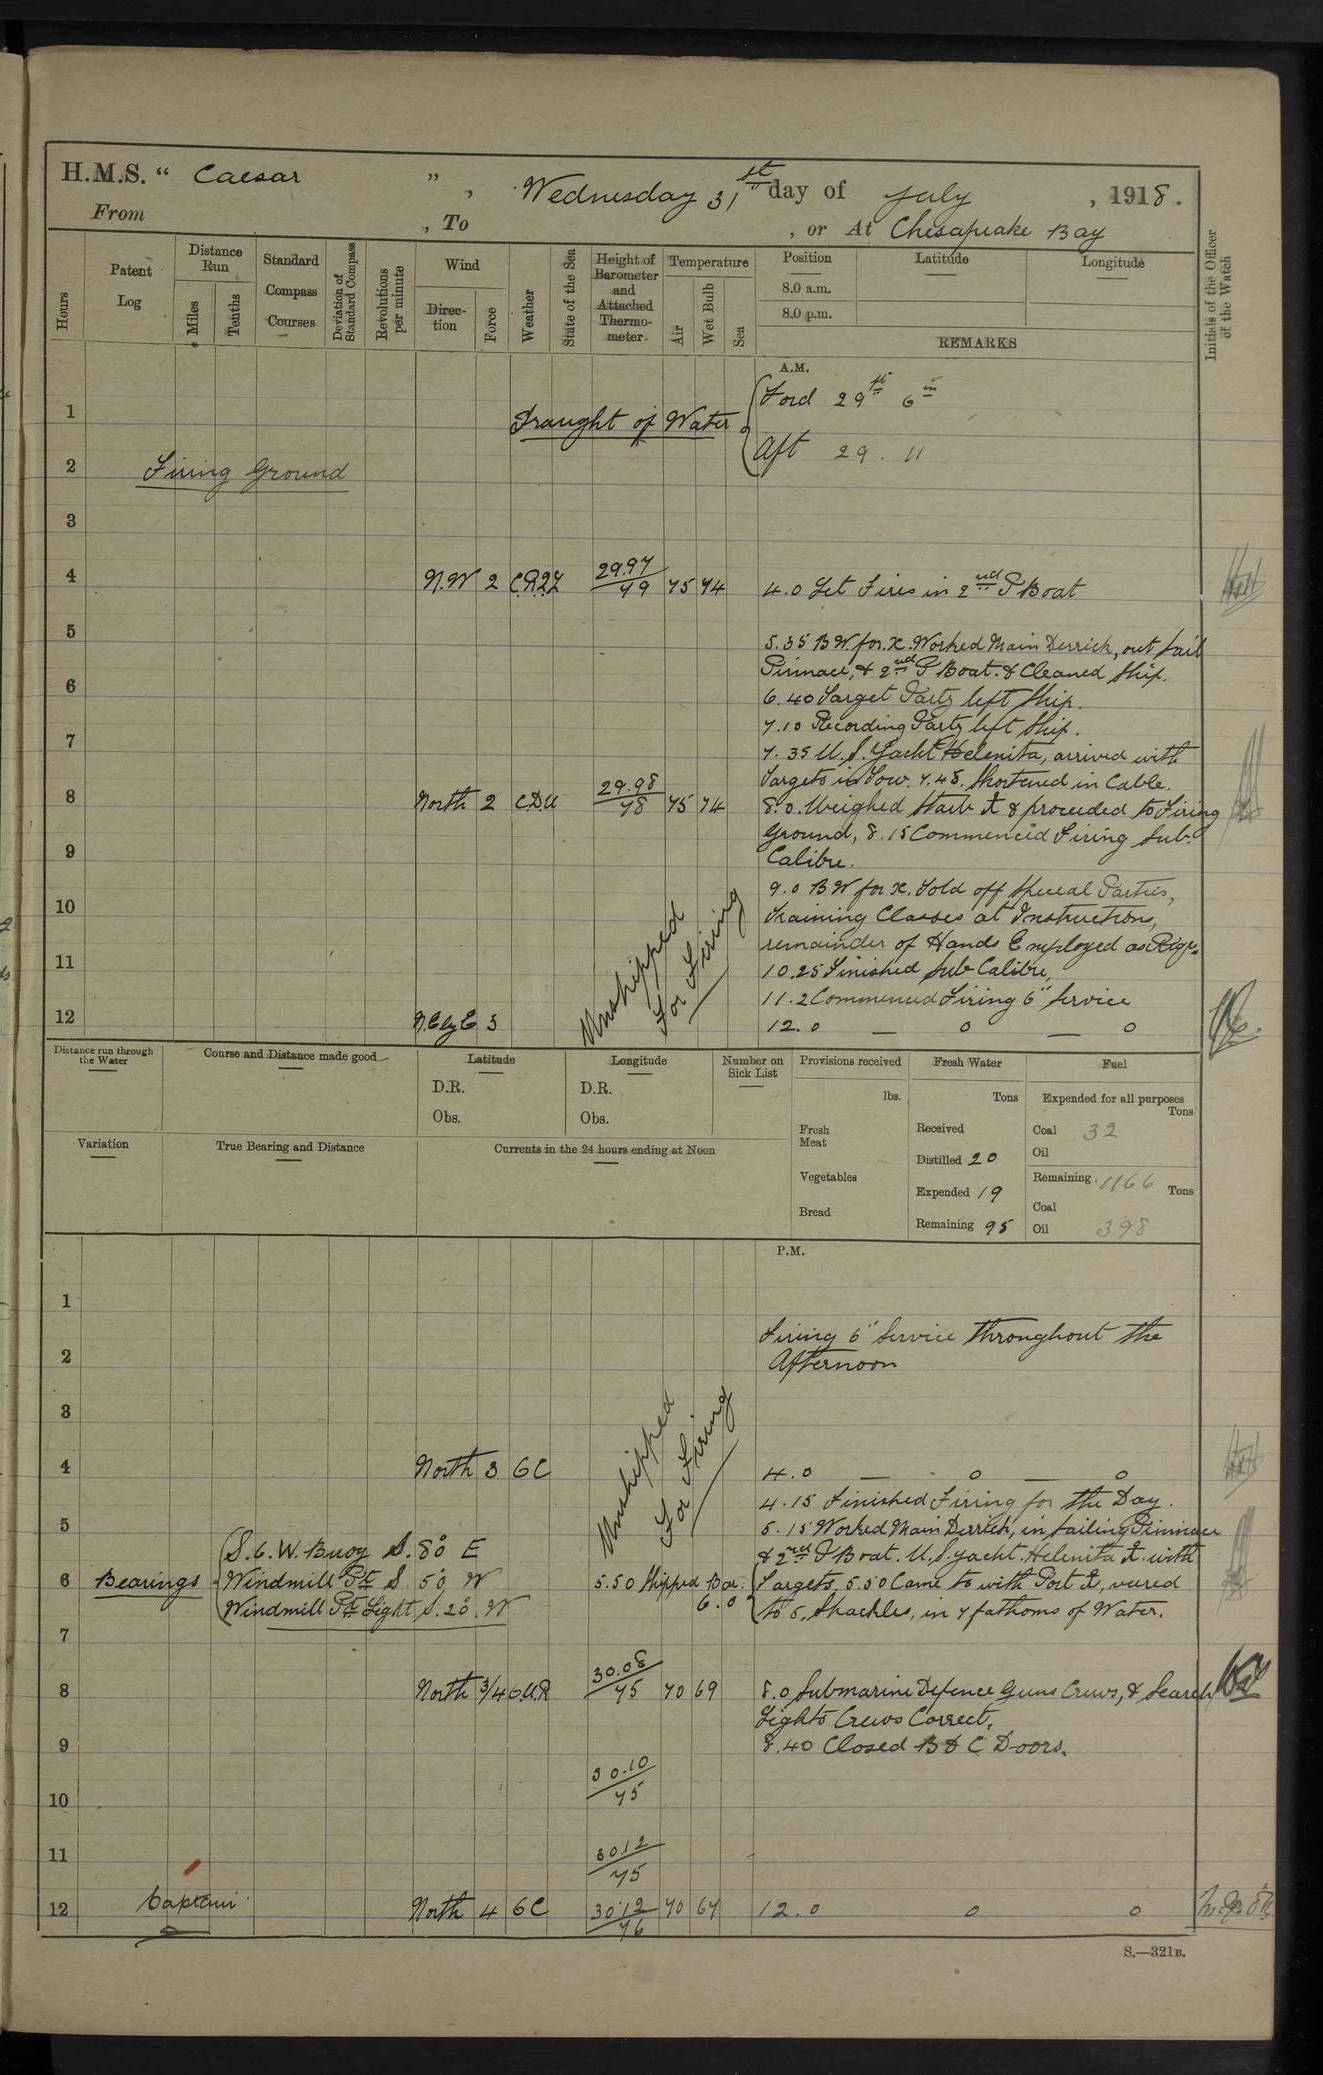 H.M.S. " Caesar " , Wednesday 31st day of July , 1918.
From , To , or At Chesapeake Bay
Hours
Patent Log
Distance Run
Miles
Tenths
Standard Compass Courses
Deviation of Standard Compass
Revolutions per minute
Wind
Direction
Force
Weather
State of the Sea
Height of Barometer and Attached Thermometer
Temperature
Air
Wet Bulb
Sea
Position
Latitude
Longitude
8.0 a.m.
8.0 p.m.
REMARKS
Initials of the Officer of the Watch
A.M.
1
Draught of Water
Ford 29 ft 6 in
Aft 29 . 11
2
Firing Ground
3
4 N.W 2 29.97/79 75 74 4.0 Let Fires in 2nd P Boat
5
5.35 B W. for. x. Worked Main Derrick, out Sail
Pinnace, & 2nd P Boat. & Cleaned Ship.
6
6.40 Target Party left Ship.
7.10 Recording Party left Ship.
7
7.35 U.S. Yacht Helenita, arrived with
Targets in Tow. 7.48. Shortened in Cable.
8 North 2 C.D.U 29.98/78 75 74 8.0. Weighed Starb & proceeded to Firing
Ground, 8.15 Commenced Firing Sub.
9
Calibre.
9.0 B W for x. Told off Special Parties,
10
Training Classes at Instructions,
remainder of Hands Employed as Req.
11
10.25 Finished Sub Calibre,
11.2 Commenced Firing 6" Service
12 N.E by E 3 Unshipped For Firing 12.0 — o — o
Distance run through the Water
Course and Distance made good
Latitude
D.R.
Obs.
Longitude
D.R.
Obs.
Number on Sick List
Provisions received
lbs.
Fresh Meat
Vegetables
Bread
Fresh Water
Tons
Received
Distilled 20
Expended 19
Remaining 95
Fuel
Expended for all purposes
Tons
Coal 32
Oil
Remaining 1166 Tons
Coal
Oil 398
Variation
True Bearing and Distance
Currents in the 24 hours ending at Noon
P.M.
1
Firing 6" Service throughout the
2
Afternoon
3
Unshipped For Firing
4 North 3 6 C 4.0 — o — o
4.15 Finished Firing for the Day.
5
5.15 Worked Main Derrick, in Sailing Pinnace
S.6.W. Buoy S. 80° E
& 2nd P Boat. U.S. Yacht. Helenita with
6 Bearings Windmill Pt S 50° W
5.50 Shipped Bar. 6.0
Targets, 5.50 Came to with Port, veered
Windmill Pt Light S. 20° W
to 5, Shackles, in 7 fathoms of Water.
7
8 North 3/4 30.08/75 70 69 8.0 Submarine Defence Guns Crews, & Search
Lights Crews Correct,
9
8.40 Closed B & C Doors.
30.10/75
10
11
30 12/75
12 Captain North 4 6 C 30.12/76 70 67 12.0 o o
S.—321B.